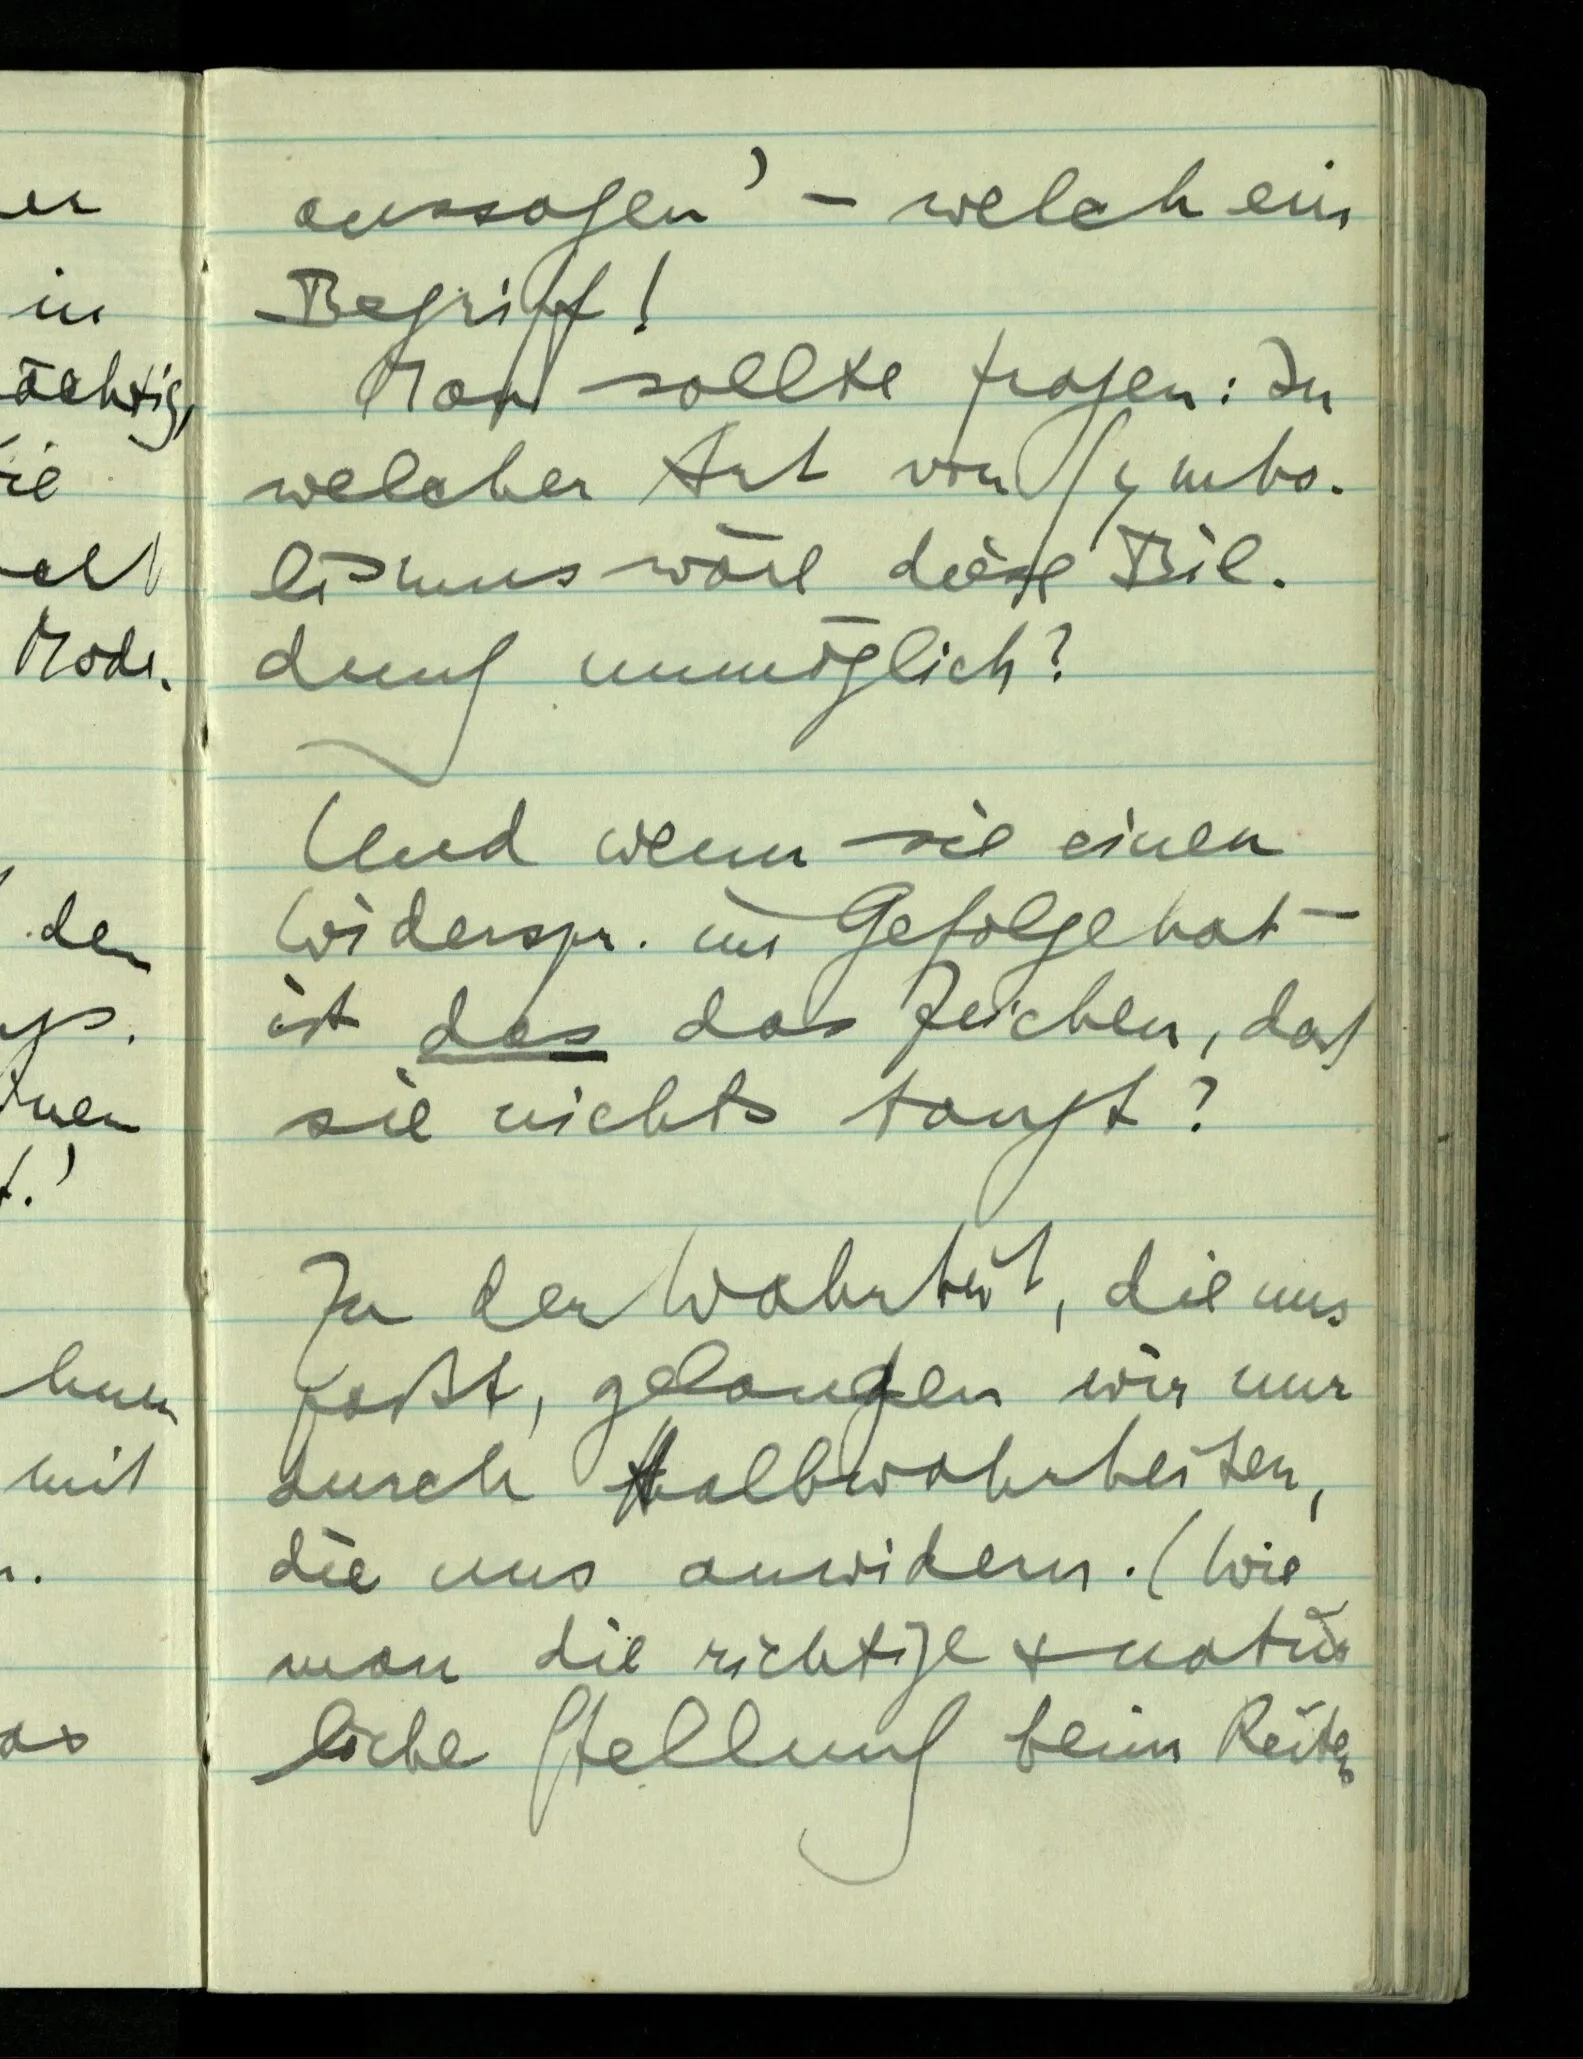 er
in
ächtig,
ie
Mode.
den
mit
aussagen' – welch ein
Begriff!
Man sollte fragen: In
welcher Art von Symbo-
lismus wäre diese Bil-
dung unmöglich?
Und wenn sie einen
Widerspr. im Gefolge hat –
ist das das Zeichen, daß
sie nichts taugt?
Zu der Wahrheit, die uns
paßt, gelangen wir nur
durch Halbwahrheiten,
die uns anwidern. (Wie
man die richtige & natür
liche Stellung beim Reiten